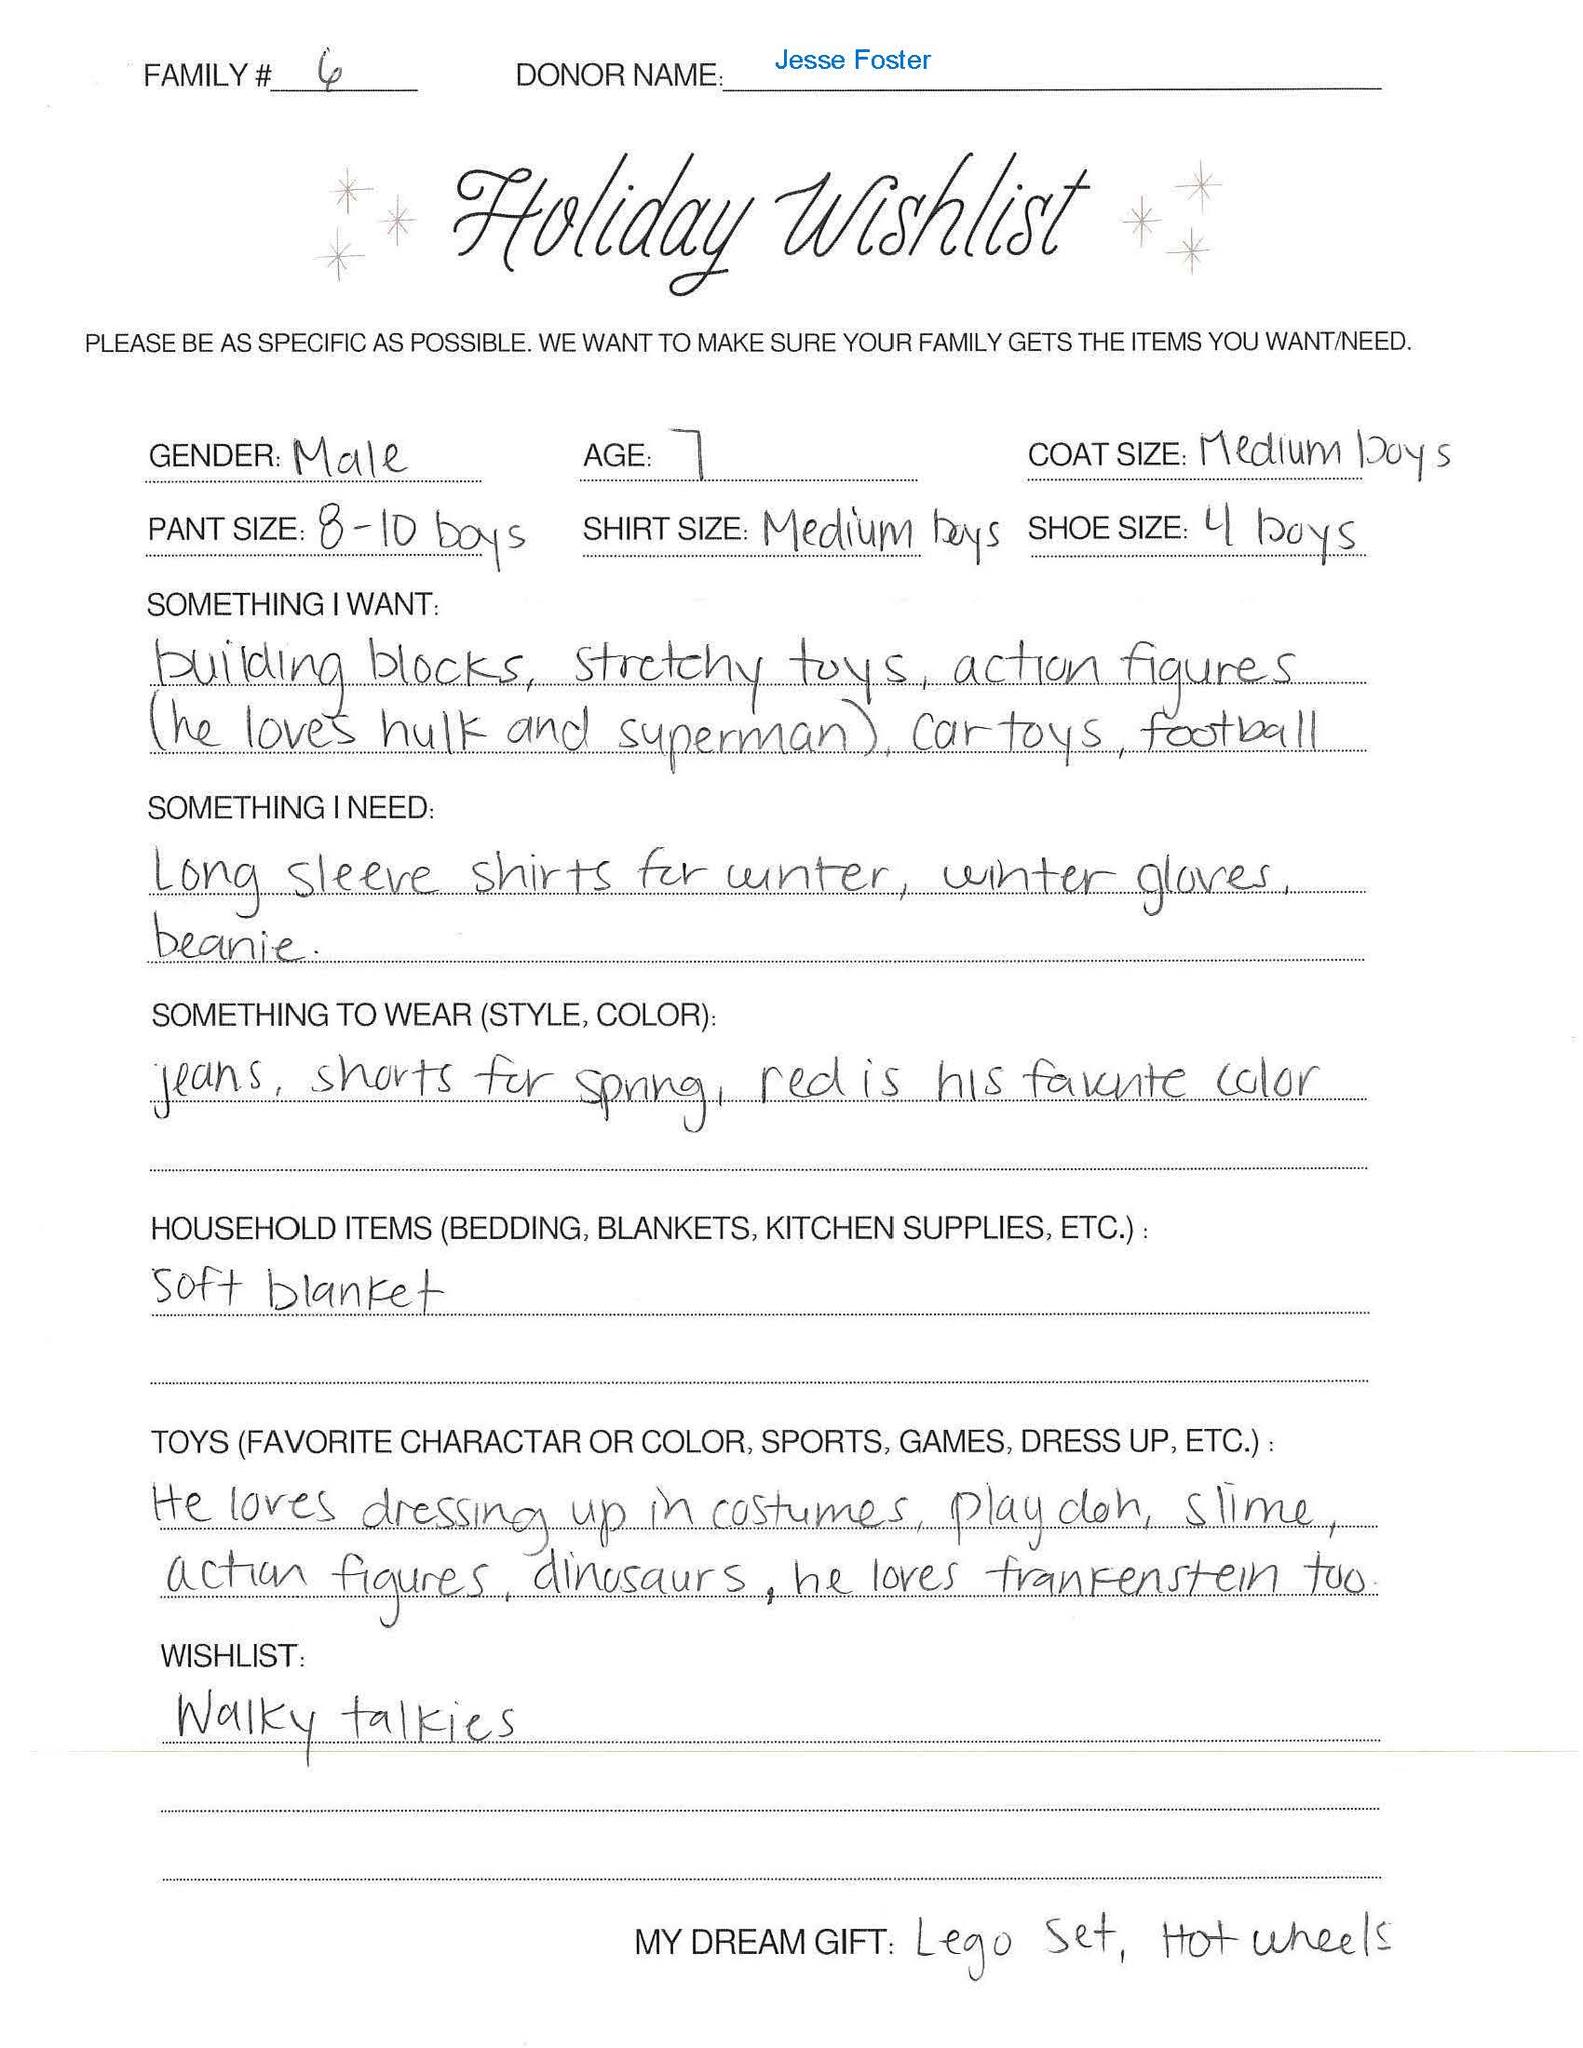 FAMILY # 6 DONOR NAME: Jesse Foster
Holiday Wishlist
PLEASE BE AS SPECIFIC AS POSSIBLE. WE WANT TO MAKE SURE YOUR FAMILY GETS THE ITEMS YOU WANT/NEED.
GENDER: Male AGE: 7 COAT SIZE: Medium boys
PANT SIZE: 8-10 boys SHIRT SIZE: Medium boys SHOE SIZE: 4 boys
SOMETHING I WANT:
building blocks, stretchy toys, action figures
(he loves hulk and superman), car toys, football
SOMETHING I NEED:
Long sleeve shirts for winter, winter gloves,
beanie.
SOMETHING TO WEAR (STYLE, COLOR):
jeans, shorts for spring, red is his favorite color
HOUSEHOLD ITEMS (BEDDING, BLANKETS, KITCHEN SUPPLIES, ETC.) :
Soft blanket
TOYS (FAVORITE CHARACTAR OR COLOR, SPORTS, GAMES, DRESS UP, ETC.) :
He loves dressing up in costumes, play doh, slime,
action figures, dinosaurs, he loves frankenstein too.
WISHLIST:
Walky talkies
MY DREAM GIFT: Lego set, Hot wheels